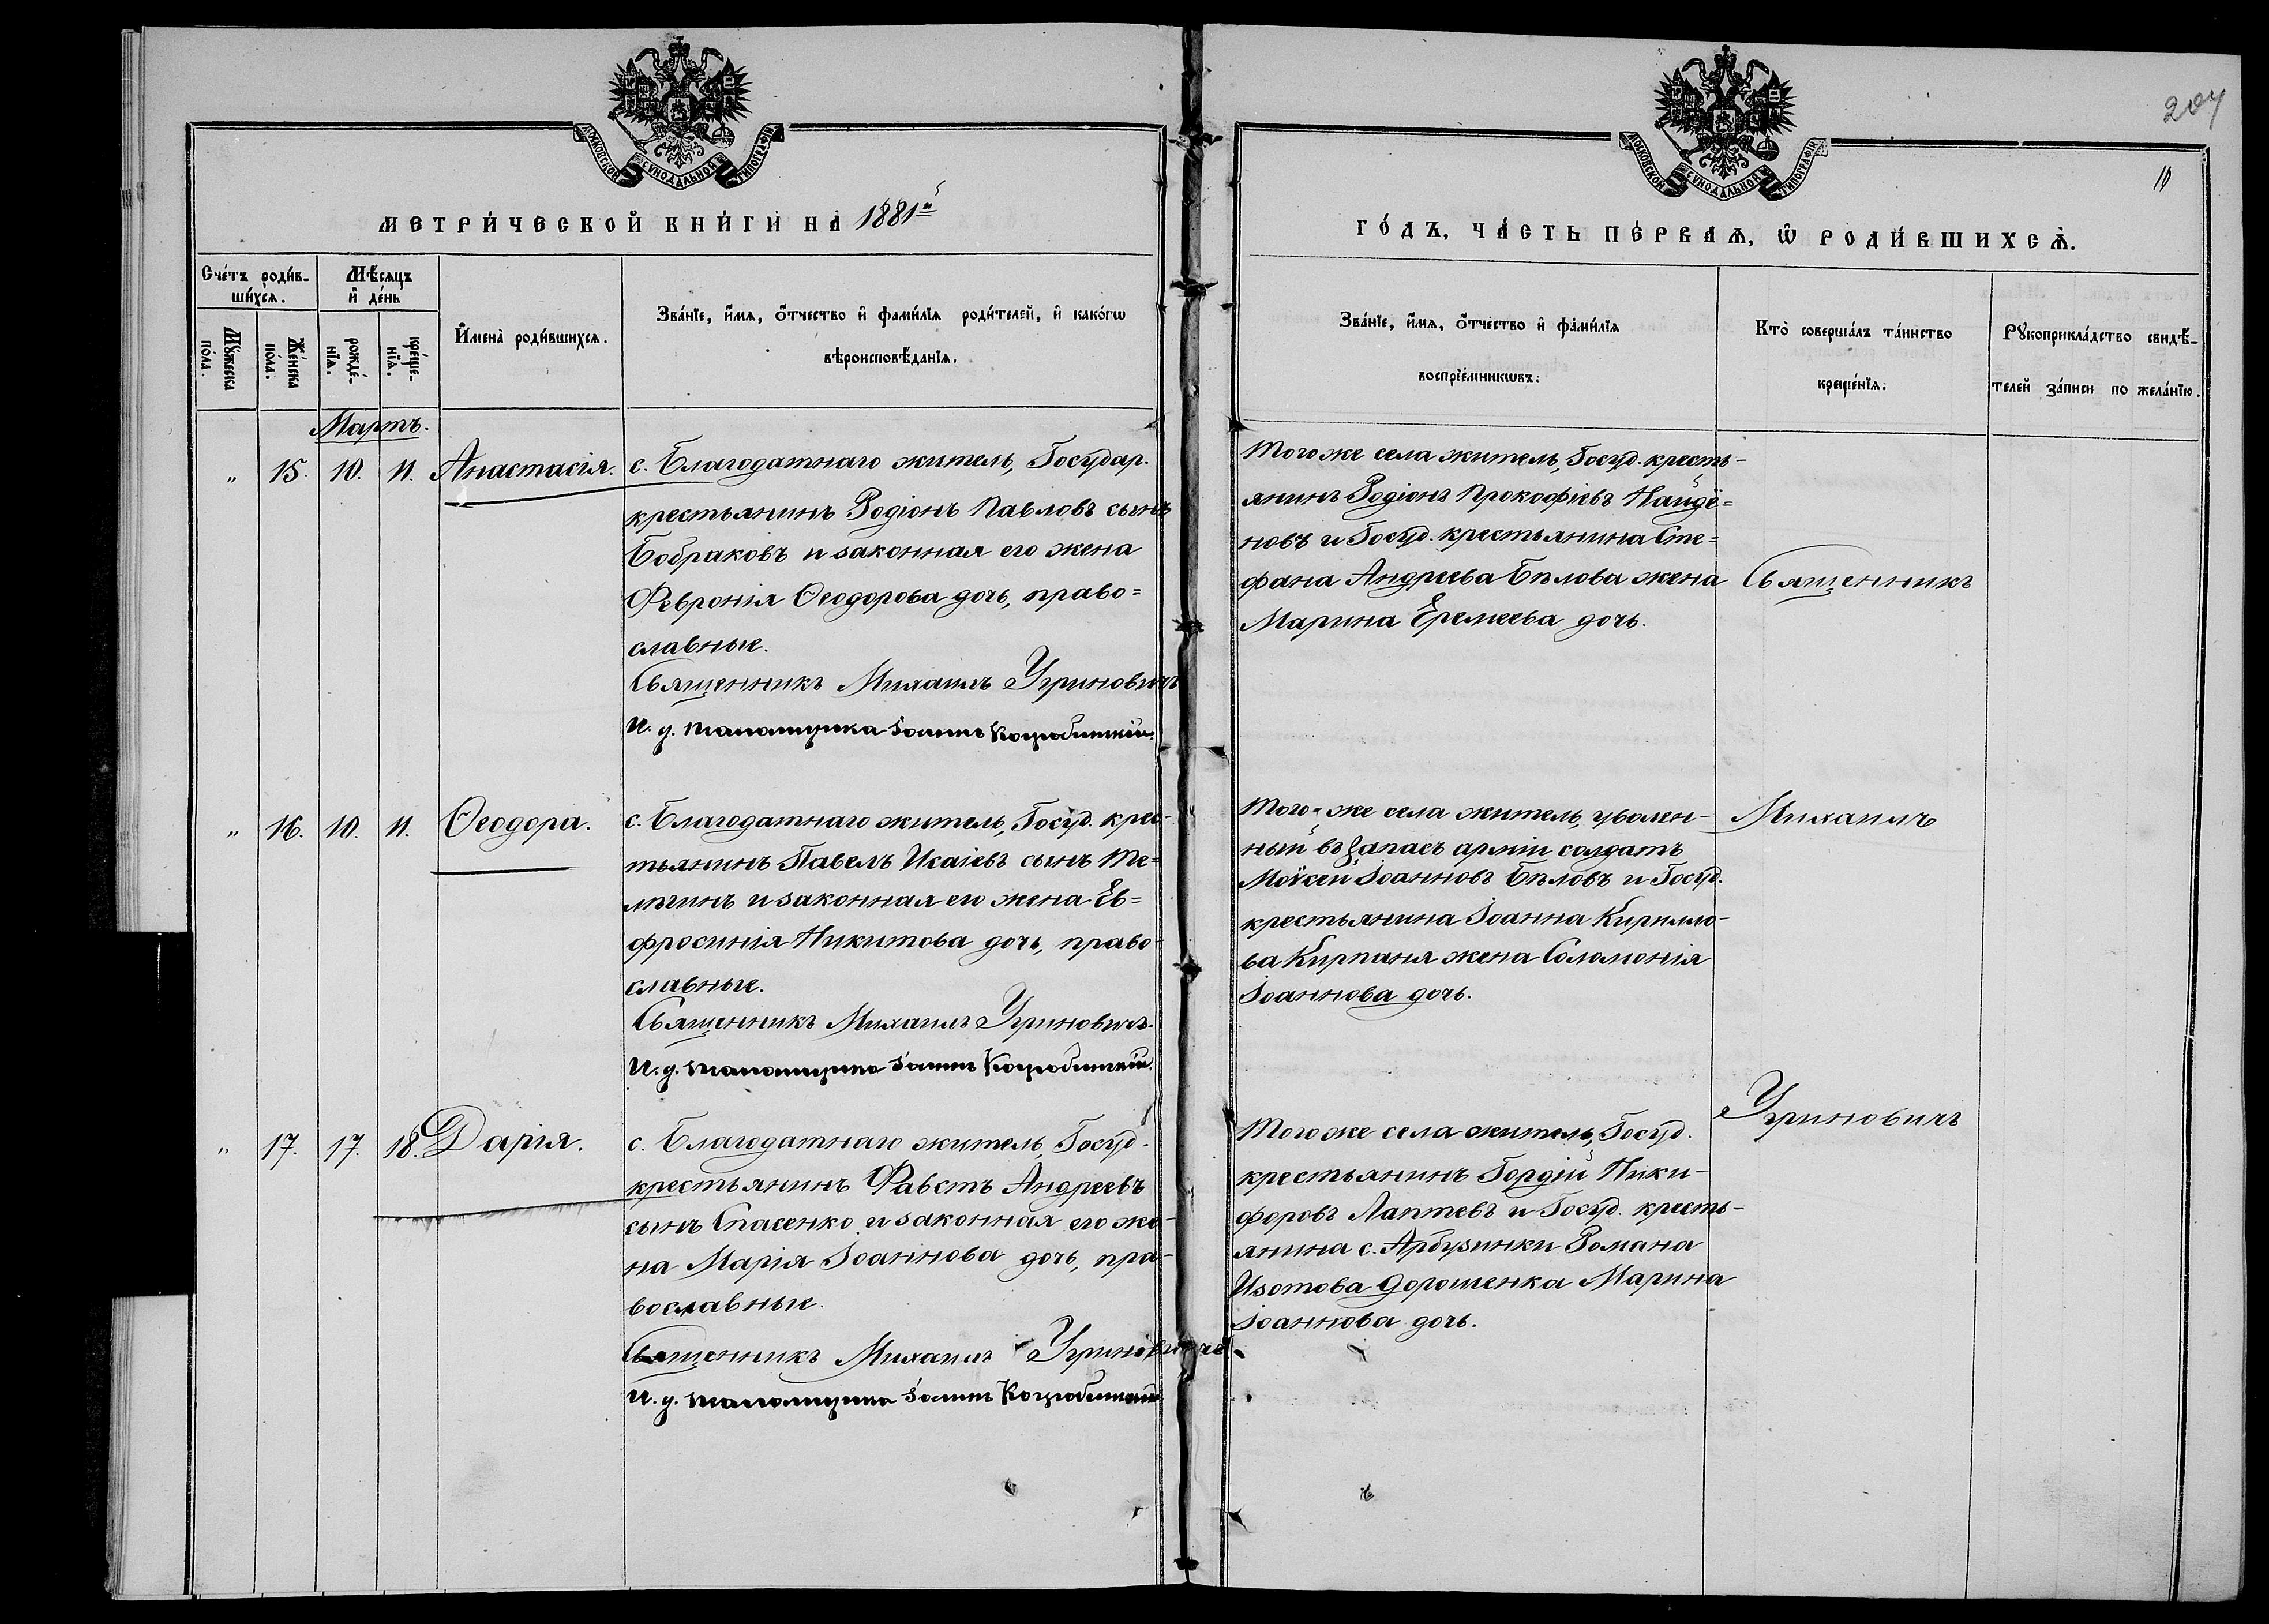 МОСКОВСКОЙ СѴНОДАЛЬНОЙ ТИПОГРАФІИ
МЕТРИ́ЧЕСКОЙ КНИ́ГИ НА 1881й
Сче́тъ роди́в-
ши́хсѧ.
Мꙋ́жеска
по́ла.
Же́нска
по́ла.
Мѣ́сѧцъ
и҆ де́нь
рожде́-
нїѧ.
креще́-
нїѧ.
И҆мена̀ роди́вшихсѧ.
Зва́нїе, и҆́мѧ, ѻ҆́тчество и҆ фами́лїѧ роди́телей, и҆ како́гѡ
вѣроисповѣ́данїѧ.
Мартъ.
„ 15. 10. 11. Анастасія.
с. Благодатнаго житель, Государ.
крестьянинъ Родіонъ Павловъ сынъ
Бобраковъ и законная его жена
Февронія Ѳеодорова дочь, право=
славные.
Священникъ Михаилъ Угриновичъ
И. д. Псаломщика Іоаннъ Коцюбинскій.
„ 16. 10. 11. Ѳеодора.
с. Благодатнаго житель, Госуд. крес-
тьянинъ Павелъ Исаіевъ сынъ Те=
лѣгинъ и законная его жена Ев=
фросинія Никитова дочь, право-
славные.
Священникъ Михаилъ Угриновичъ
И. д. Псаломщика Іоаннъ Коцюбинскій.
„ 17. 17. 18. Дарія.
с. Благодатнаго житель, Госуд.
крестьянинъ Фавстъ Андреевъ
сынъ Спасенко и законная его же-
на Марія Іоаннова дочь, пра-
вославные.
Священникъ Михаилъ Угриновичъ
И. д. Псаломщика Іоаннъ Коцюбинскій
204
10
МОСКОВСКОЙ СѴНОДАЛЬНОЙ ТИПОГРАФІИ
ГО́ДЪ, ЧА́СТЬ ПЕ́РВАѦ, Ѡ҆ РОДИ́ВШИХСѦ.
Зва́нїе, и҆́мѧ, ѻ҆́тчество и҆ фами́лїѧ
воспрїе́мникѡвъ.
Кто̀ соверша́лъ та́инство
креще́нїѧ.
Рꙋкоприкла́дство свидѣ́-
телей за́писи по жела́нїю.
Того же села житель, Госуд. кресть-
янинъ Родіонъ Прокофіевъ Найдё=
новъ и Госуд. крестьянина Сте=
фана Андреева Бѣлова жена
Марина Еремеева дочь.
Священникъ
Того-же села житель, уволен-
ный въ запасъ арміи солдатъ
Мо́ѵсей Іоанновъ Бѣловъ и Госуд.
крестьянина Іоанна Кирилло-
ва Кирпаня жена Соломонія
Іоаннова дочь.
Михаилъ
Того же села житель, Госуд.
крестьянинъ Гордій Ники-
форовъ Лаптевъ и Госуд. кресть-
янина с. Арбузинки Романа
Изотова Дорошенка Марина
Іоаннова дочь.
Угриновичъ